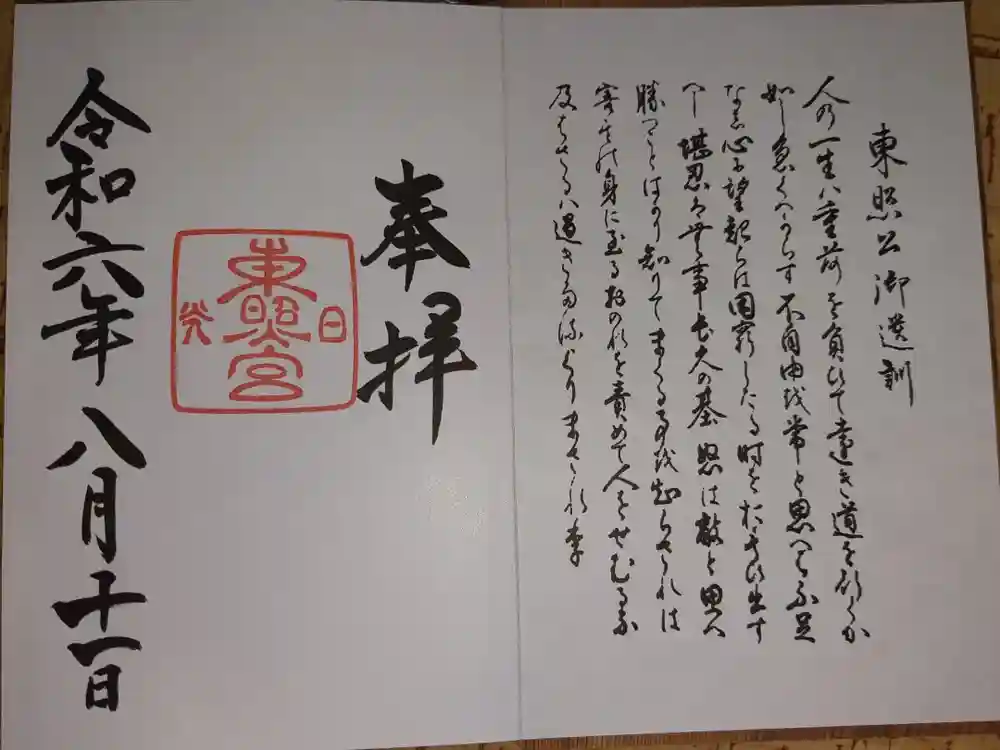 東照公御遺訓
人の一生ハ重荷を負ひて遠き道を行くか
如し急くへからす不自由を常と思へハ不足
なし心に望起らは困窮したる時をおもひ出す
へし堪忍は無事長久の基怒は敵と思へ
勝つことはかり知りてまくる事を知らされは
害その身に至るおのれを責めて人をせむるな
及はさるハ過きたるよりまされり
奉拝
日
東照宮
光
令和六年八月十一日